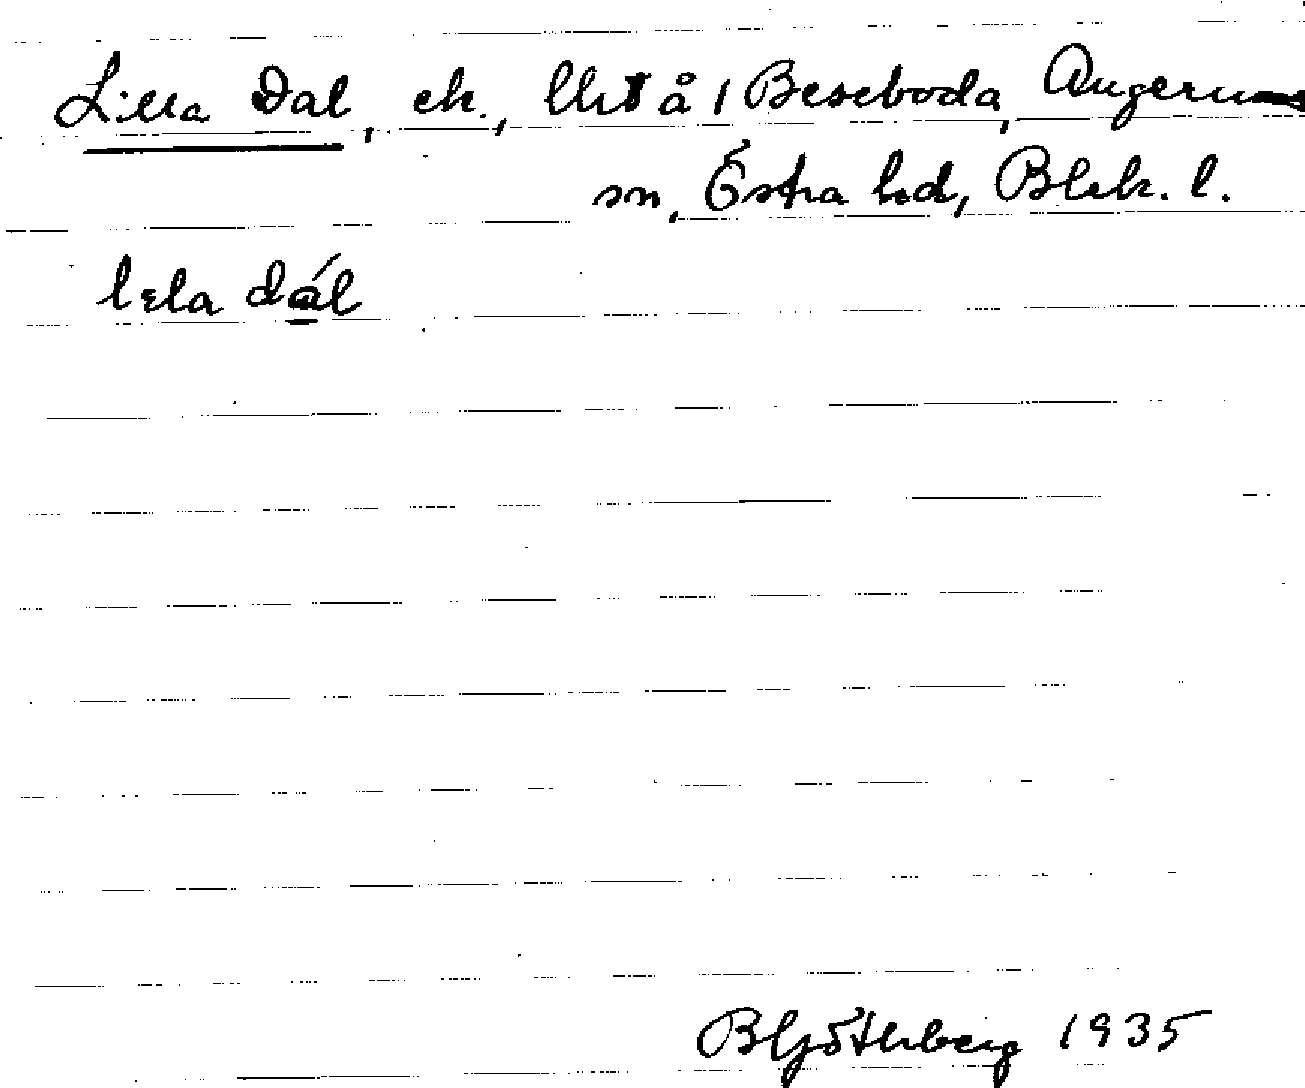 Lilla Dal, ek., lht å 1 Beseboda, Augerums
sn, Östra hd, Blek. l.
lɛla dál
B Götherberg 1935